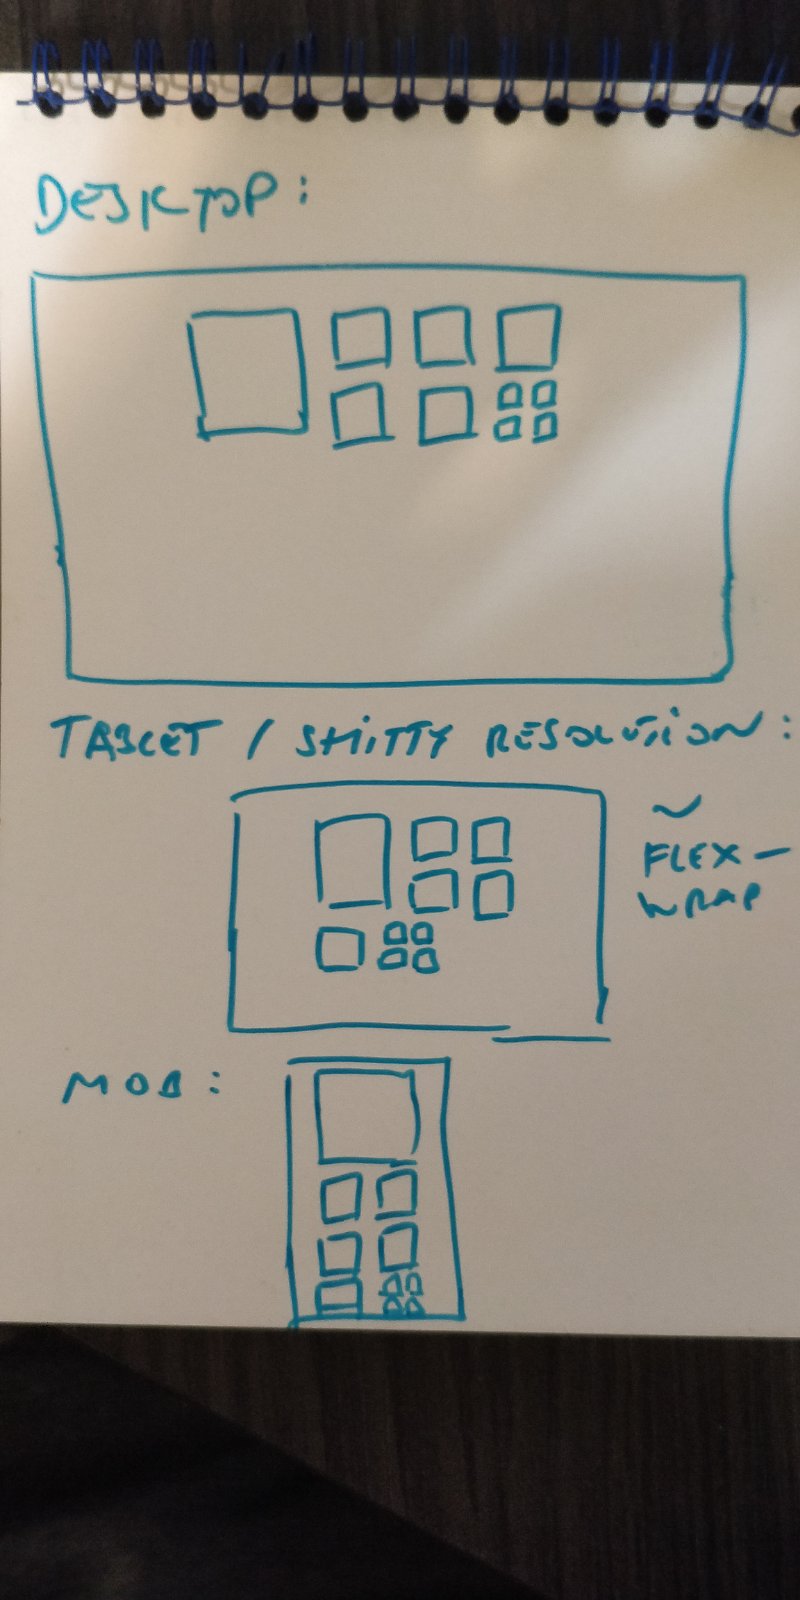 DESKTOP:
TABLET / SHITTY RESOLUTION:
~
FLEX-
WRAP
MOB: